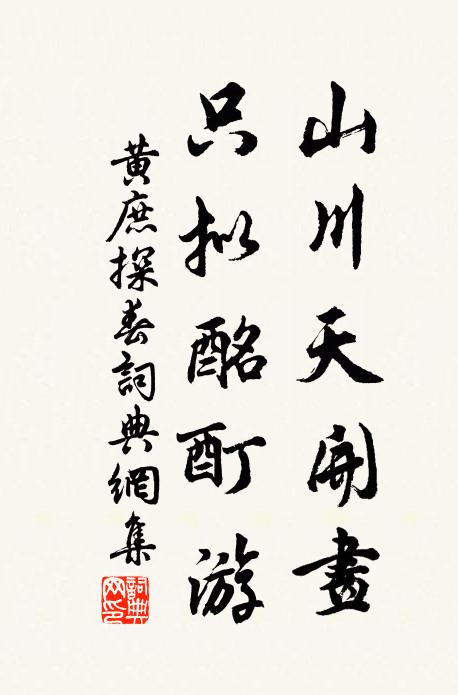 山川天開畫
只拟酩酊游
黃庶探春詞典網集
詞典网印